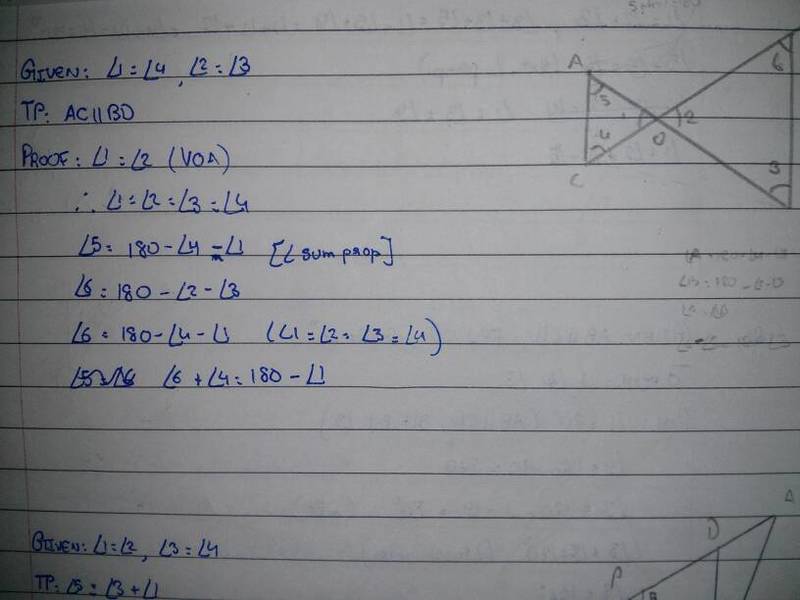 GIVEN: ∠1 = ∠4 , ∠2 = ∠3
TP: AC || BD
PROOF: ∠1 = ∠2 (VOA)
∴ ∠1 = ∠2 = ∠3 = ∠4
∠5 = 180 - ∠4 - ∠1 [∠ sum prop]
∠6 = 180 - ∠2 - ∠3
∠6 = 180 - ∠4 - ∠1 (∠1 = ∠2 = ∠3 = ∠4)
∠6 + ∠4 = 180 - ∠1
A
5
6
4
2
O
C
3
GIVEN: ∠1 = ∠2 , ∠3 = ∠4
TP: ∠5 = ∠3 + ∠1
A
D
P